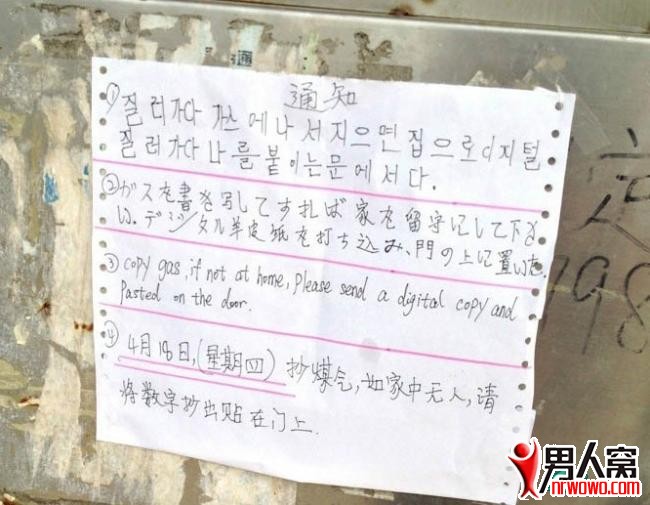 通知
① 질러가다 가스에나서지으면집으로디지털
질러가다나를붙이는문에서다.
②ガスを書き写してすれば家を留守にして下さ
い.デジタル羊皮紙を打ち込み、門の上に置いた.
③ copy gas, if not at home, please send a digital copy and
Pasted on the door.
④ 4月18日,(星期四) 抄煤气,如家中无人,请
将数字抄出贴在门上.
798
男人窝
nrwowo.com